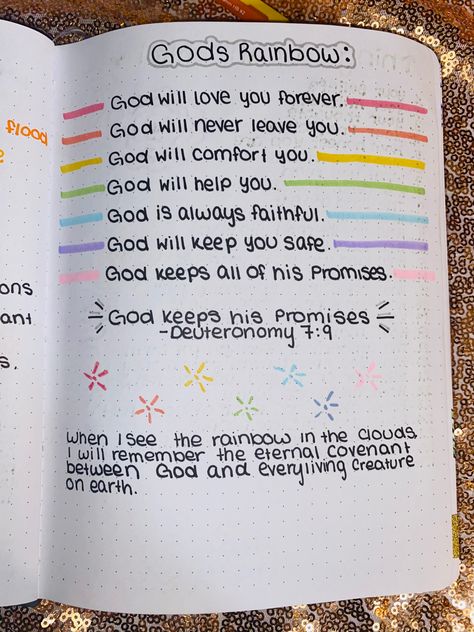 Gods Rainbow:
God will love you forever.
God will never leave you.
God will comfort you.
God will help you.
God is always faithful.
God will keep you safe.
God keeps all of his Promises.
God keeps his Promises
-Deuteronomy 7:9
When I see the rainbow in the clouds,
I will remember the eternal covenant
between God and every living creature
on earth.
flood
ons
ant
s.